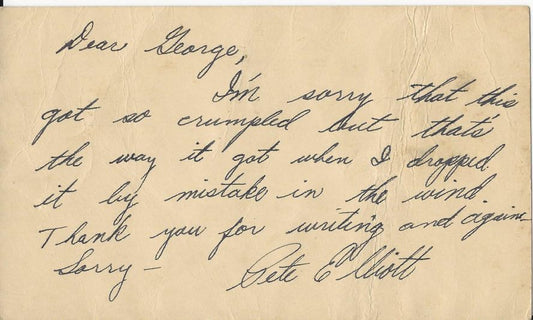 Dear George,
I'm sorry that this
got so crumpled but that's
the way it got when I dropped
it by mistake in the wind.
Thank you for writing and again
Sorry – Pete Elliott